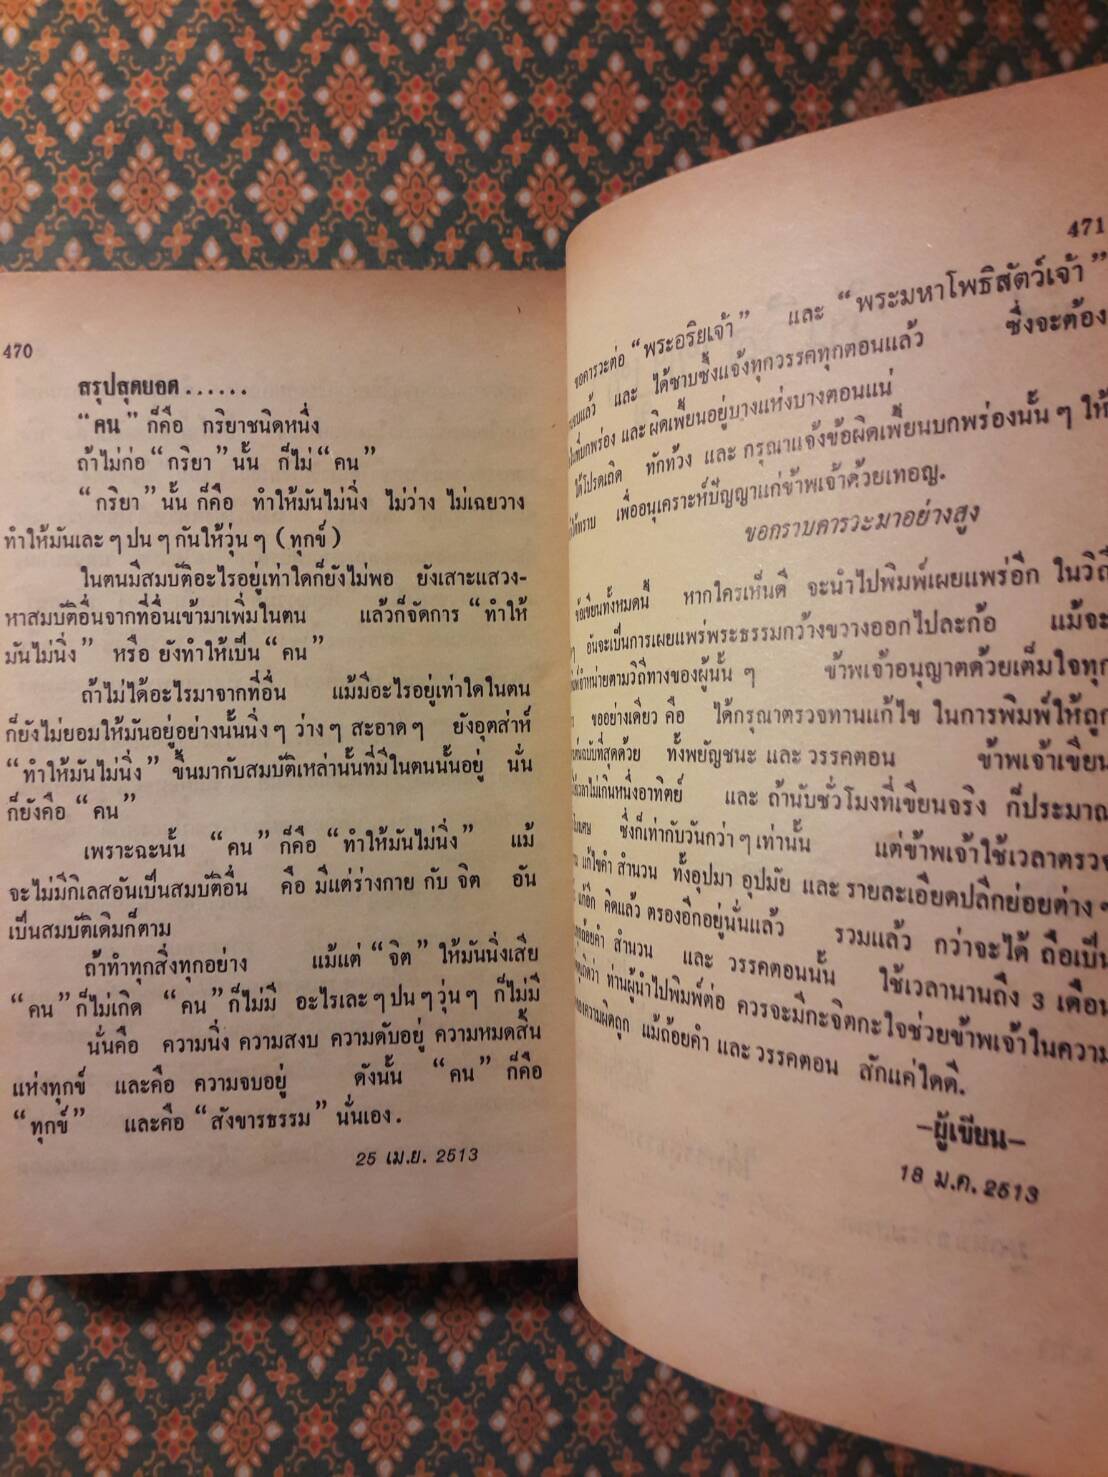 470
สรุปสุดยอด......
“คน” ก็คือ กริยาชนิดหนึ่ง
ถ้าไม่ก่อ “กริยา” นั้น ก็ไม่ “คน”
“กริยา” นั้น ก็คือ ทำให้มันไม่นิ่ง ไม่ว่าง ไม่เฉยวาง
ทำให้มันเละ ๆ ปน ๆ กันให้วุ่น ๆ (ทุกข์)
ในตนมีสมบัติอะไรอยู่เท่าใดก็ยังไม่พอ ยังเสาะแสวง-
หาสมบัติอื่นจากที่อื่นเข้ามาเพิ่มในตน แล้วก็จัดการ “ทำให้
มันไม่นิ่ง” หรือ ยังทำให้เป็น “คน”
ถ้าไม่ได้อะไรมาจากที่อื่น แม้มีอะไรอยู่เท่าใดในตน
ก็ยังไม่ยอมให้มันอยู่อย่างนั้นนิ่ง ๆ ว่าง ๆ สะอาด ๆ ยังอุตส่าห์
“ทำให้มันไม่นิ่ง” ขึ้นมากับสมบัติเหล่านั้นที่มีในตนนั้นอยู่ นั่น
ก็ยังคือ “คน”
เพราะฉะนั้น “คน” ก็คือ “ทำให้มันไม่นิ่ง” แม้
จะไม่มีกิเลสอันเป็นสมบัติอื่น คือ มีแต่ร่างกาย กับ จิต อัน
เป็นสมบัติเดิมก็ตาม
ถ้าทำทุกสิ่งทุกอย่าง แม้แต่ “จิต” ให้มันนิ่งเสีย
“คน” ก็ไม่เกิด “คน” ก็ไม่มี อะไรเละ ๆ ปน ๆ วุ่น ๆ ก็ไม่มี
นั่นคือ ความนิ่ง ความสงบ ความดับอยู่ ความหมดสิ้น
แห่งทุกข์ และคือ ความจบอยู่ ดังนั้น “คน” ก็คือ
“ทุกข์” และคือ “สังขารธรรม” นั่นเอง.
25 เม.ย. 2513
471
ขอคารวะต่อ “พระอริยเจ้า” และ “พระมหาโพธิสัตว์เจ้า”
แล้ว และ ได้ซาบซึ้งแจ้งทุกวรรคทุกตอนแล้ว ซึ่งจะต้อง
ที่บกพร่อง และ ผิดเพี้ยนอยู่บางแห่งบางตอนแน่
ได้โปรดเถิด ทักท้วง และ กรุณาแจ้งข้อผิดเพี้ยนบกพร่องนั้น ๆ ให้
เพื่ออนุเคราะห์ปัญญาแก่ข้าพเจ้าด้วยเทอญ.
ขอกราบคารวะมาอย่างสูง
ข้อเขียนทั้งหมดนี้ หากใครเห็นดี จะนำไปพิมพ์เผยแพร่อีก ในวิถี
ๆ อันจะเป็นการเผยแพร่พระธรรมกว้างขวางออกไปละก้อ แม้จะ
จำหน่ายตามวิถีทางของผู้นั้น ๆ ข้าพเจ้าอนุญาตด้วยเต็มใจทุก
ขออย่างเดียว คือ ได้กรุณาตรวจทานแก้ไข ในการพิมพ์ให้ถูก
ต้นฉบับที่สุดด้วย ทั้งพยัญชนะ และ วรรคตอน ข้าพเจ้าเขียน
เวลาไม่เกินหนึ่งอาทิตย์ และ ถ้านับชั่วโมงที่เขียนจริง ก็ประมาณ
ซึ่งก็เท่ากับวันกว่า ๆ เท่านั้น แต่ข้าพเจ้าใช้เวลาตรวจ
แก้ไขคำ สำนวน ทั้งอุปมา อุปมัย และ รายละเอียดปลีกย่อยต่าง ๆ
แก้อีก คิดแล้ว ตรองอีกอยู่นั่นแล้ว รวมแล้ว กว่าจะได้ ถือเป็น
ถ้อยคำ สำนวน และ วรรคตอนนั้น ใช้เวลานานถึง 3 เดือน
ท่านผู้นำไปพิมพ์ต่อ ควรจะมีกะจิตกะใจช่วยข้าพเจ้าในความ
ความผิดถูก แม้ถ้อยคำ และ วรรคตอน สักแค่ใดดี.
—ผู้เขียน—
18 ม.ค. 2513